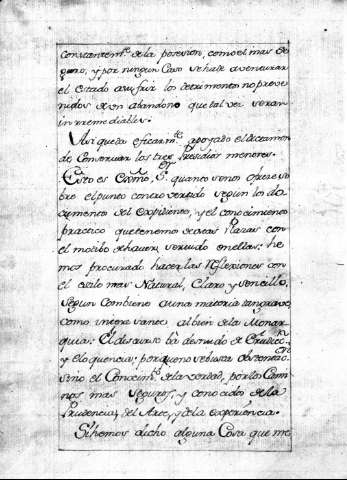 constantem.te de la posesion, como el mas se
guro, y por ningun Caso se ha de aventurar
el estado a sufrir los detrimentos no preve
nidos de un abandono que tal vez seran
irremediables.
Asi queda eficazm.te apoyado el dictamen
de Conservar los tres Presidios menores.
Esto es Exmo. S.or quanto se nos ofrece so
bre el punto controvertido segun los do
cumentos del Expediente, y el conocimiento
practico que tenemos de estas Plazas con
el motibo de haver servido en ellas: he
mos procurado hacer las Reflexiones con
el estilo mas Natural, Claro, y sencillo,
segun Combiene a una materia tan grave,
como interesante al bien de la Monar
quia: El discurso ba desnudo de Erudic.on
y Eloquencia; porque no se busca ostentac.on
sino el Conocim.to de la verdad, por los Cami
nos mas seguros, y conocidos de la
Prudencia, del Arte, y de la experiencia.
Si hemos dicho alguna Cosa que me